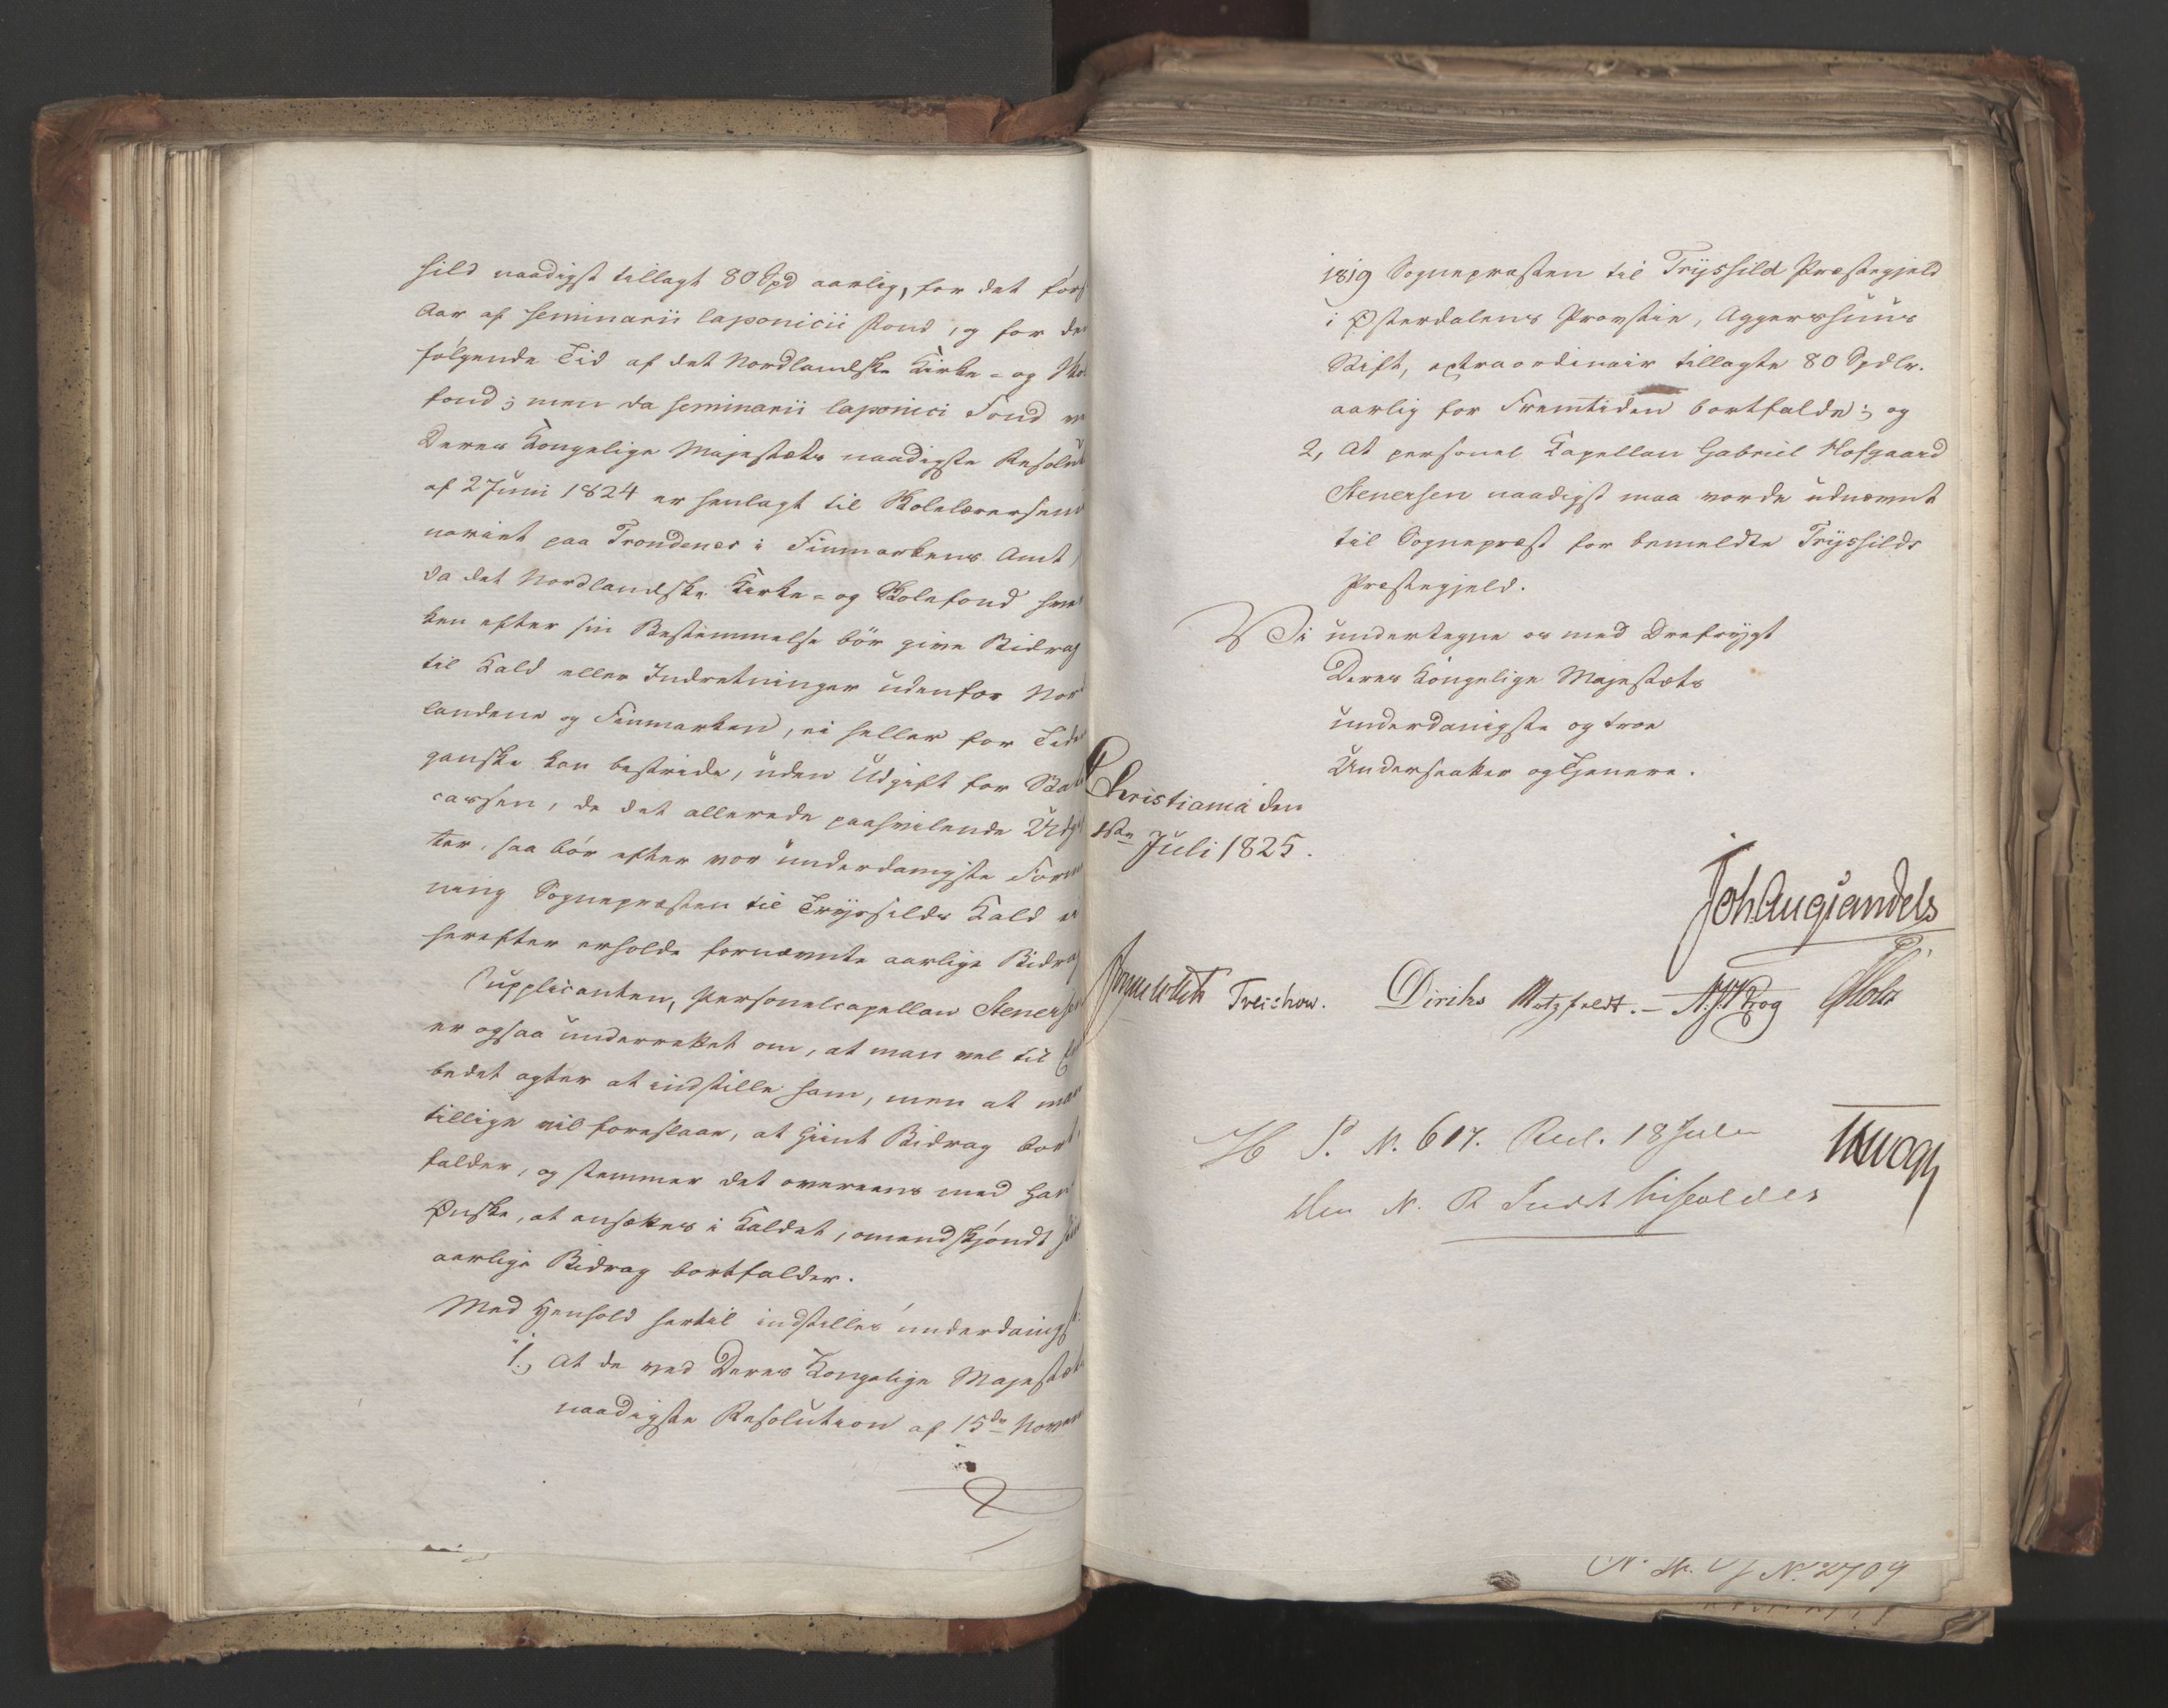 sild naadigst tillagt 80 Spd aarlig, for det förs
Aar af seminarii laponicii Fond, og for den
fölgende Tid af det Nordlandske Kirke- og Sko
fond; men da seminarii laponici Fond ve
Deres Kongelige Majestæts naadigste Resolut
af 2 Juni 1824 er henlagt til Skolelærersemi
nariet paa Trondenes i Finmarkens Amt,
da det Nordlandske Kirke- og Skolefond hver
ken efter sin Bestemmelse bör give Bidrag
til Kald eller Indretninger udenfor Nord
landene og Finmarken, ei heller for Tiden
ganske kan bestride, uden Udgift for Stats
cassen, de det allerede paahvilende Udgif
ter, saa bör efter vor underdanigste Forme
ning Sognepræsten til Tryssilds Kald ei
herefter erholde fornævnte aarlige Bidrag
Supplicanten, Personelcapellan Stenersen
er ogsaa underrettet om, at man vel til Em
bedet agter at indstille ham, men at man
tillige vil foreslaae, at hiint Bidrag bort
falder, og stemmer det overeens med Hans
Ønske, at ansættes i Kaldet, omendskjöndt hiint
aarlige Bidrag bortfalder.
Med Henhold hertil indstilles underdanigst:
1., At de ved Deres Kongelige Majestæts
naadigste Resolution af 15de Novem
1819 Sognepræsten til Tryssild Præstegjeld
i Østerdalens Provstie, Aggershuus
Stift, extraordinair tillagte 80 Spdlr.
aarlig for Fremtiden bortfalde; og
2, At personel Kapellan Gabriel Hofgaard
Stenersen naadigst maa vorde udnævnt
til Sognepræst for bemeldte Tryssilds
Præstegjeld.
Vi undertegne os med Ærefrygt
Deres Kongelige Majestæts
underdanigste og troe
Undersaatter og Tjenere.
Christiania den
Juli 1825.
Joh Aug Sandels
Treschow. Diriks Motzfeldt. Krog Holst
N. 617. 18 Juli
JHVogt
N. R Indst
N. 2709